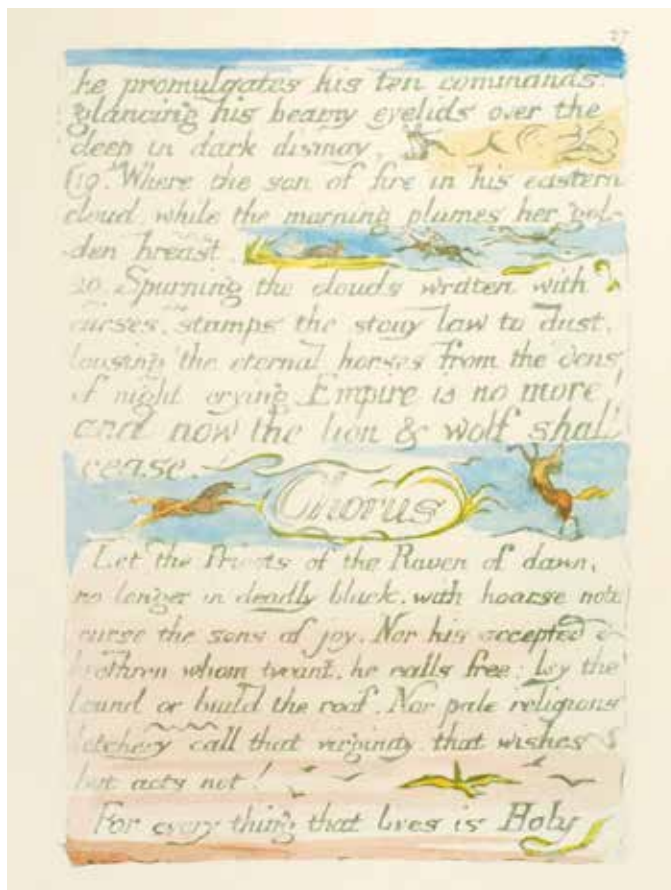 27
he promulgates his ten commands,
glancing his beamy eyelids over the
deep in dark dismay,
19. Where the son of fire in his eastern
cloud, while the morning plumes her gol-
-den breast,
20. Spurning the clouds written with
curses, stamps the stony law to dust,
loosing the eternal horses from the dens
of night, crying Empire is no more!
and now the lion & wolf shall
cease.
Chorus
Let the Priests of the Raven of dawn,
no longer in deadly black, with hoarse note
curse the sons of joy. Nor his accepted
brethren whom tyrant, he calls free: lay the
bound or build the roof. Nor pale religious
letchery call that virginity, that wishes
but acts not!
For every thing that lives is Holy